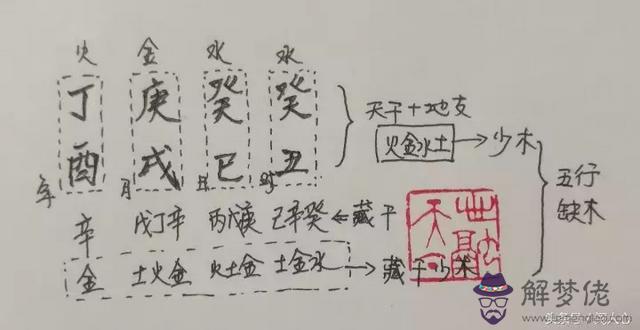 火 金 水 水
丁 庚 癸 癸
酉 戌 巳 丑
年 月 日 时
天干+地支
火金水土 → 少木
五行
缺木
辛 戊丁辛 丙戊庚 己辛癸 ← 藏干
金 土火金 火土金 土金水 → 藏干少木
解梦佬